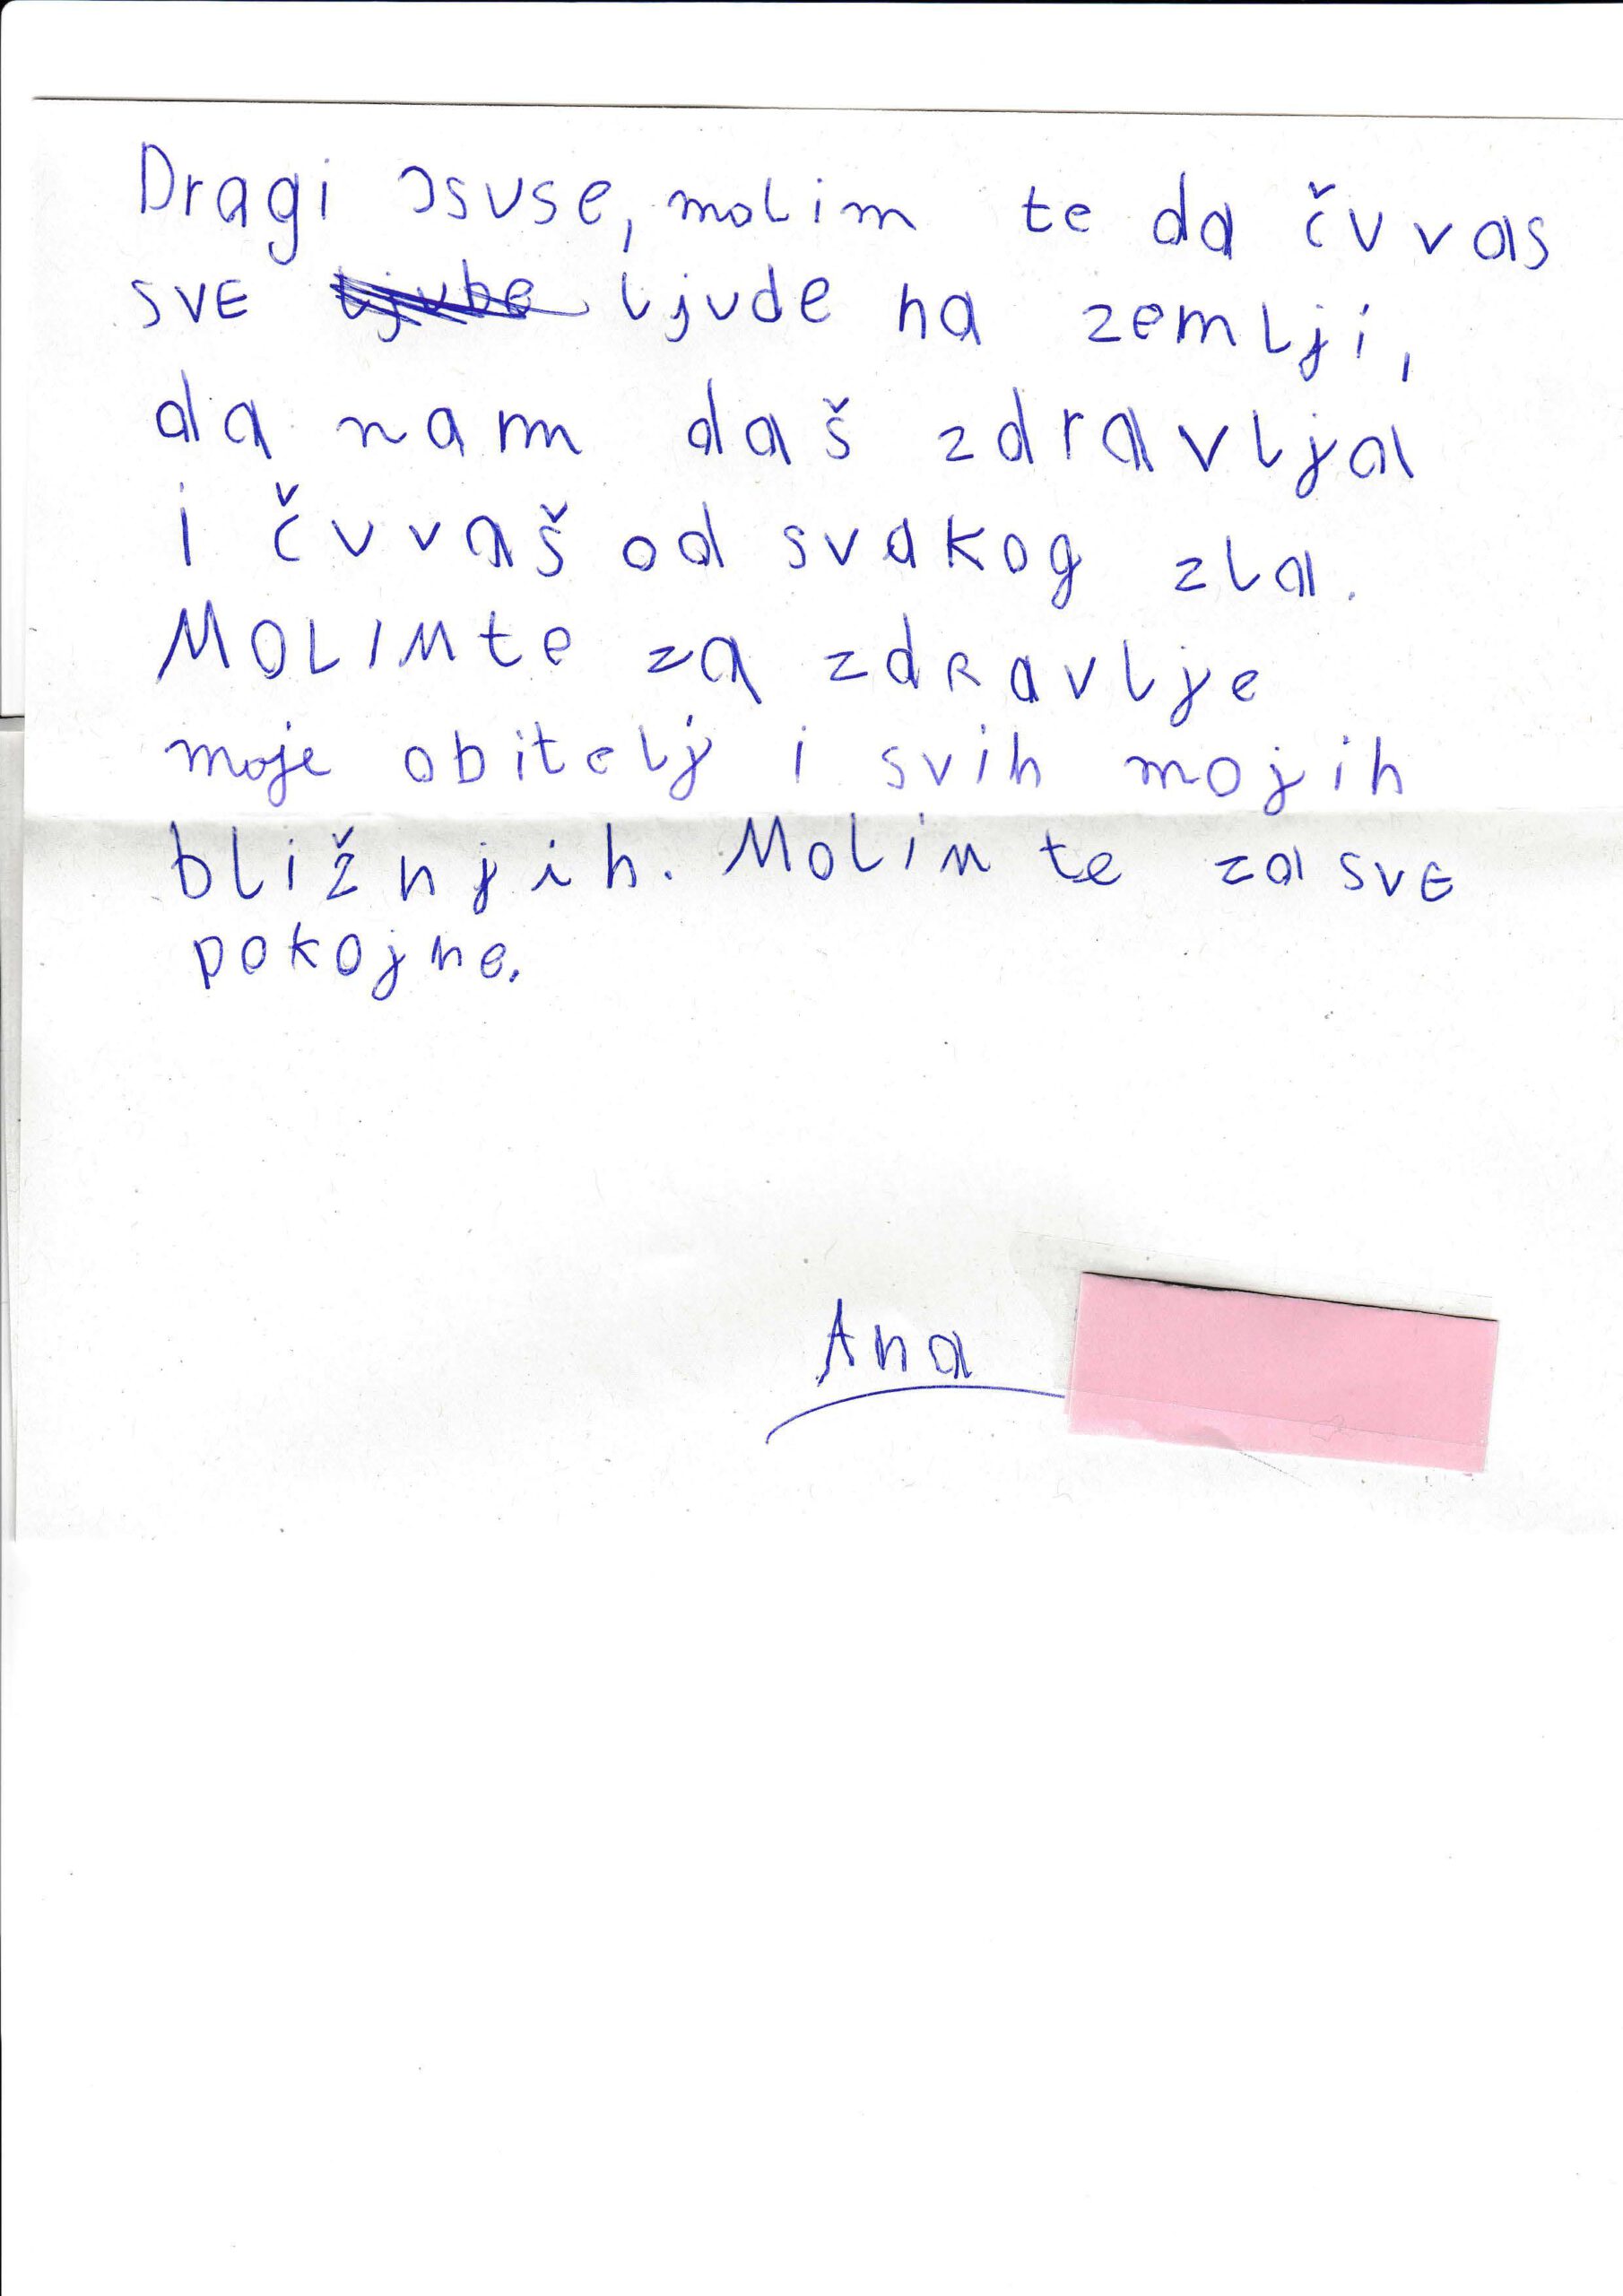 Dragi Isuse, molim te da čuvas
SVE ljude na zemlji,
da nam daš zdravlja
i čuvaš od svakog zla.
MOLIMte za zdRavlje
moje obitelj i svih mojih
bližnjih. Molim te za SVE
pokojne.
Ana